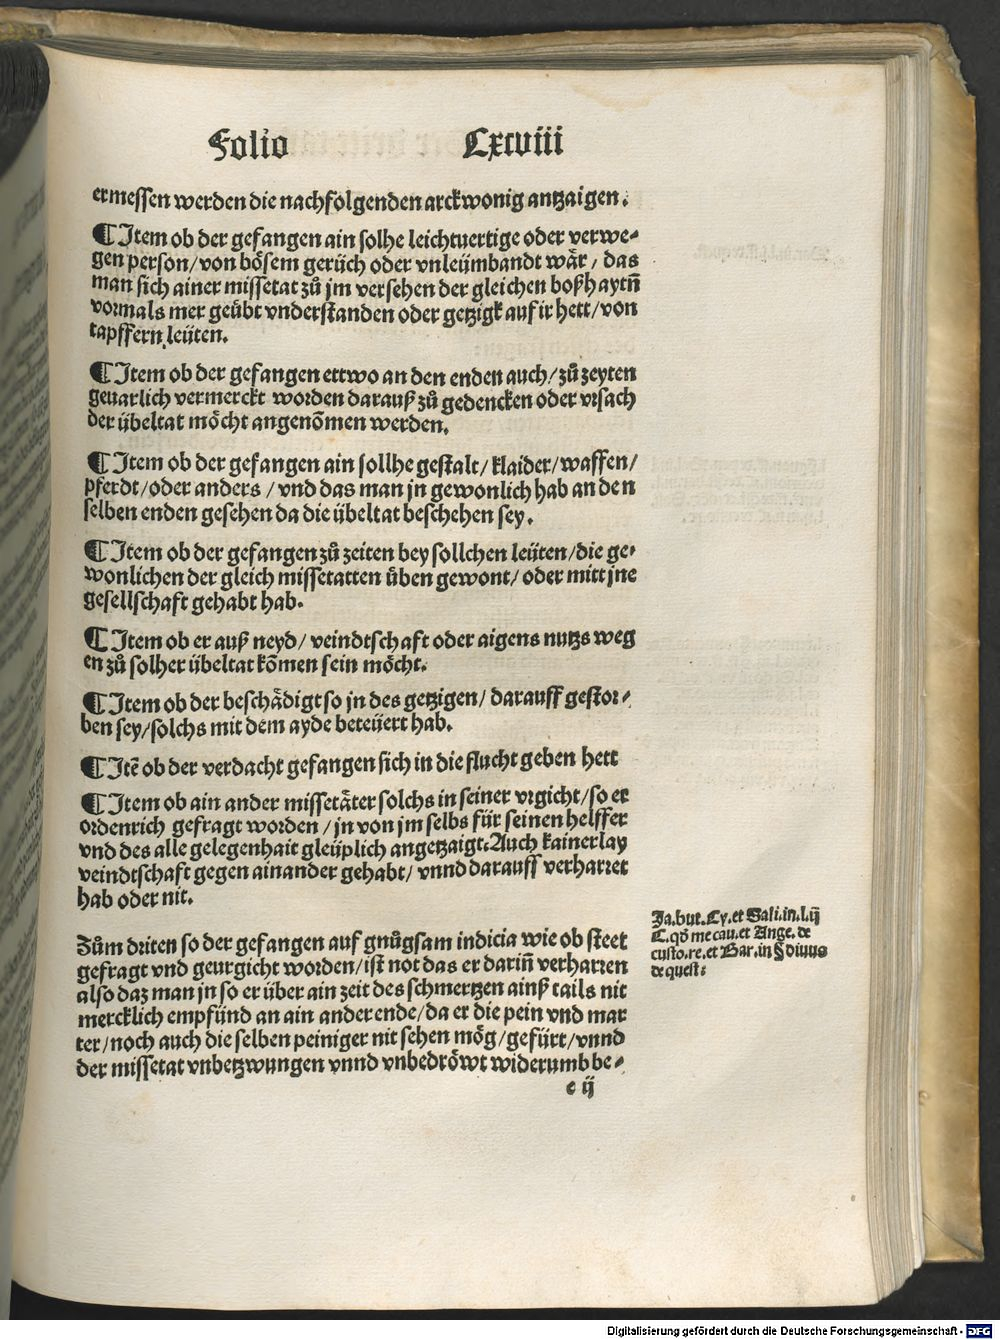 Folio Cxcviii
ermessen werden die nachfolgenden arckwonig antzaigen.
¶ Item ob der gefangen ain solhe leichtuertige oder verwe-
gen person/von bösem gerüch oder vnleümbandt wär/ das
man sich ainer missetat zů jm versehen der gleichen boßhaytñ
vormals mer geübt vnderstanden oder getzigk auf ir hett/von
tapffern leüten.
¶ Item ob der gefangen ettwo an den enden auch/zů zeyten
geuarlich vermerckt worden darauß zů gedencken oder vrsach
der übeltat möcht angenõmen werden.
¶ Item ob der gefangen ain sollhe gestalt/klaider/waffen/
pferdt/oder anders/vnd das man jn gewonlich hab an den
selben enden gesehen da die übeltat beschehen sey.
¶ Item ob der gefangen zů zeiten bey sollchen leüten/die ge-
wonlichen der gleich missetatten üben gewont/oder mitt jne
gesellschaft gehabt hab.
¶ Item ob er auß neyd/veindtschaft oder aigens nutzs weg
en zů solher übeltat kõmen sein möcht.
¶ Item ob der beschädigt so jn des getzigen/darauff gestor-
ben sey/solchs mit dem ayde beteüert hab.
¶ Itẽ ob der verdacht gefangen sich in die flucht geben hett
¶ Item ob ain ander missetäter solchs in seiner vrgicht/so er
ordenrich gefragt worden/jn von jm selbs für seinen helffer
vnd des alle gelegenhait gleüplich angetzaigt.Auch kainerlay
veindtschaft gegen ainander gehabt/vnnd darauff verharret
hab oder nit.
Zům driten so der gefangen auf gnůgsam indicia wie ob steet
gefragt vnd geurgicht worden/ist not das er dariñ verharren
also daz man jn so er über ain zeit des schmertzen ainß tails nit
mercklich empfünd an ain ander ende/da er die pein vnd mar
ter/noch auch die selben peiniger nit sehen mög/gefürt/vnnd
der missetat vnbetzwungen vnnd vnbedröwt widerumb be-
e ij
Ja.but.Cy.et Sali.in.l.ij
C.qõ me cau.et Ange.de
custo.re.et Bar.in § diuus
de quest.
Digitalisierung gefördert durch die Deutsche Forschungsgemeinschaft - DFG